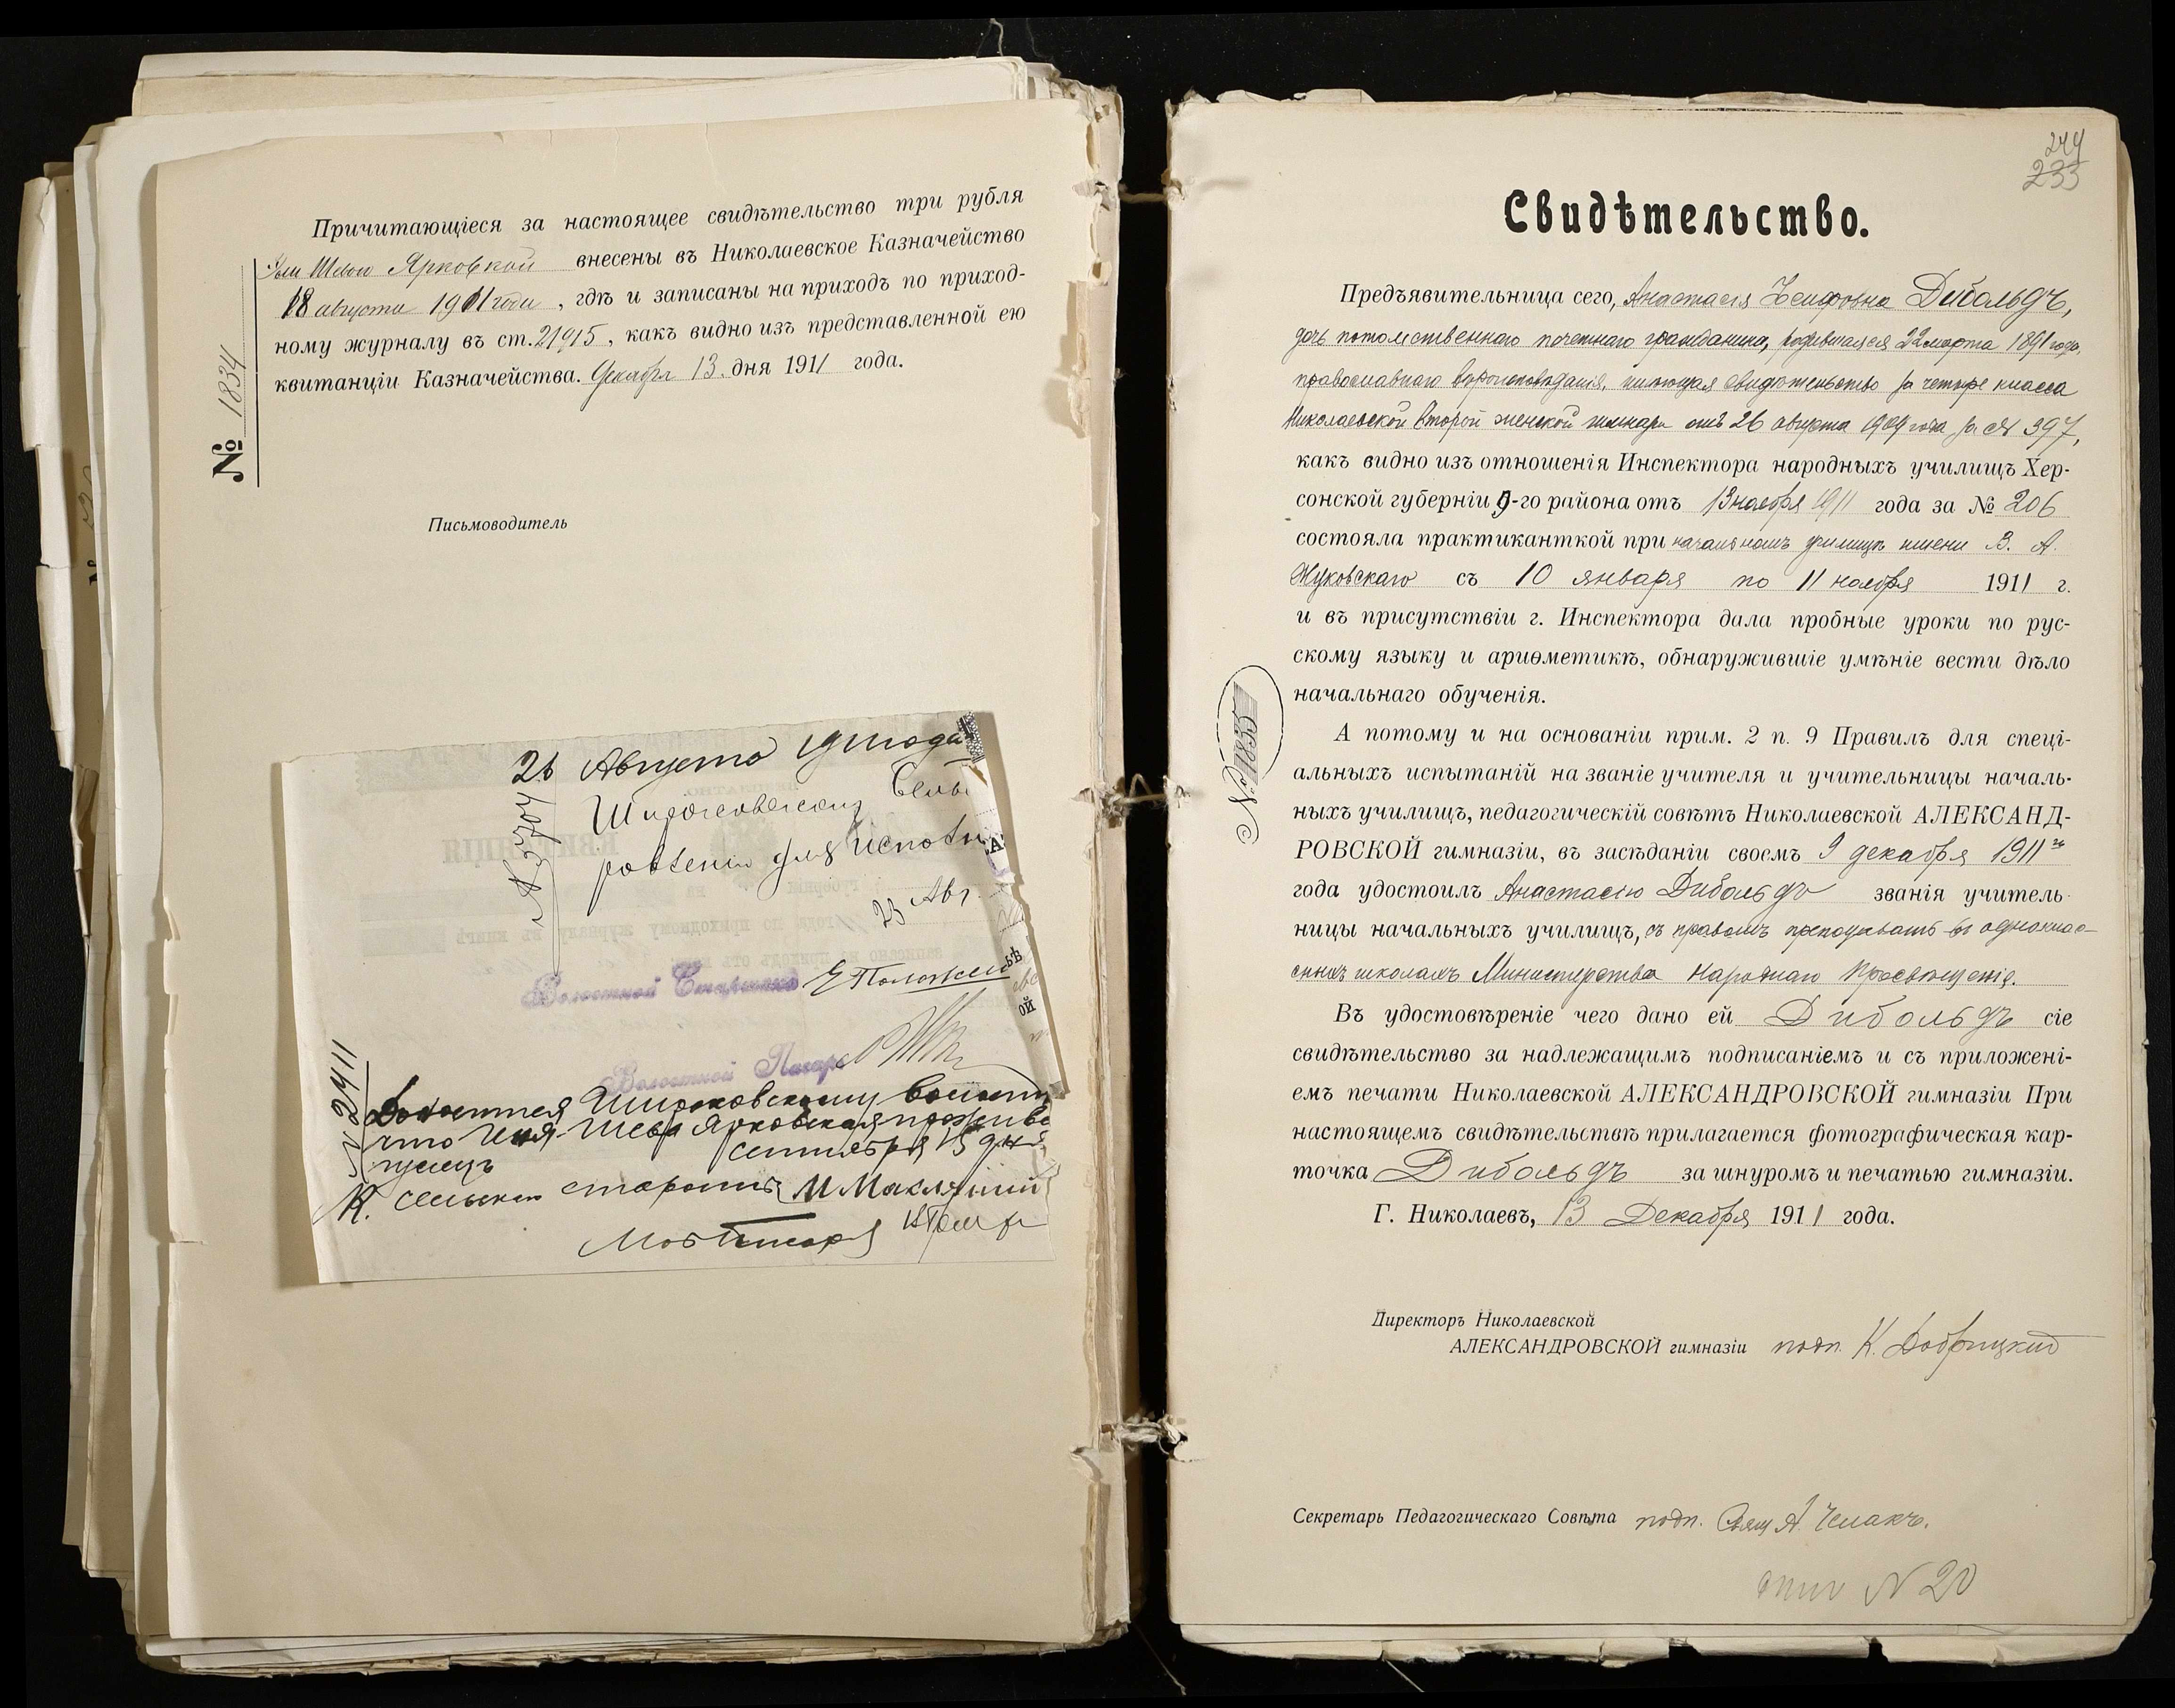 Причитающіеся за настоящее свидѣтельство три рубля
Ярковской внесены въ Николаевское Казначейство
18 августа 1911 года, гдѣ и записаны на приходъ по приход-
ному журналу въ ст. 21915, какъ видно изъ представленной ею
квитанціи Казначейства. Декабря 13 дня 1911 года.
№ 1834
Письмоводитель
26 Августа 1911 года
Широковскому Сель
для исполн
23 Авг.
Волостной Старшина
Волостной Писарь
№ 2411
Широковскому
что Ярковская
сентября 15 дня
Сельскій староста
244
233
Свидѣтельство.
Предъявительница сего, Анастасія Дибольдъ,
дочь потомственнаго почетнаго гражданина, родившаяся 22 марта 1891 года,
православнаго вѣроисповѣданія, имѣющая свидѣтельство за четыре класса
Николаевской второй женской гимназіи отъ 26 августа 1909 года за № 397,
какъ видно изъ отношенія Инспектора народныхъ училищъ Хер-
сонской губерніи 9-го района отъ 13 ноября 1911 года за № 206
состояла практиканткой при начальномъ училищѣ имени В. А.
Жуковскаго съ 10 января по 11 ноября 1911 г.
и въ присутствіи г. Инспектора дала пробные уроки по рус-
скому языку и ариѳметикѣ, обнаружившіе умѣніе вести дѣло
начальнаго обученія.
№ 1835
А потому и на основаніи прим. 2 п. 9 Правилъ для спеці-
альныхъ испытаній на званіе учителя и учительницы началь-
ныхъ училищъ, педагогическій совѣтъ Николаевской АЛЕКСАНД-
РОВСКОЙ гимназіи, въ засѣданіи своемъ 9 декабря 1911 го
года удостоилъ Анастасію Дибольдъ званія учитель-
ницы начальныхъ училищъ, съ правомъ преподавать въ однокла-
сныхъ школахъ Министерства Народнаго Просвѣщенія.
Въ удостовѣреніе чего дано ей Дибольдъ сіе
свидѣтельство за надлежащимъ подписаніемъ и съ приложені-
емъ печати Николаевской АЛЕКСАНДРОВСКОЙ гимназіи При
настоящемъ свидѣтельствѣ прилагается фотографическая кар-
точка Дибольдъ за шнуромъ и печатью гимназіи.
Г. Николаевъ, 13 Декабря 1911 года.
Директоръ Николаевской
АЛЕКСАНДРОВСКОЙ гимназіи подп. К. Добрицкій
Секретарь Педагогическаго Совѣта подп. Свящ. А. Чемакъ.
N 20